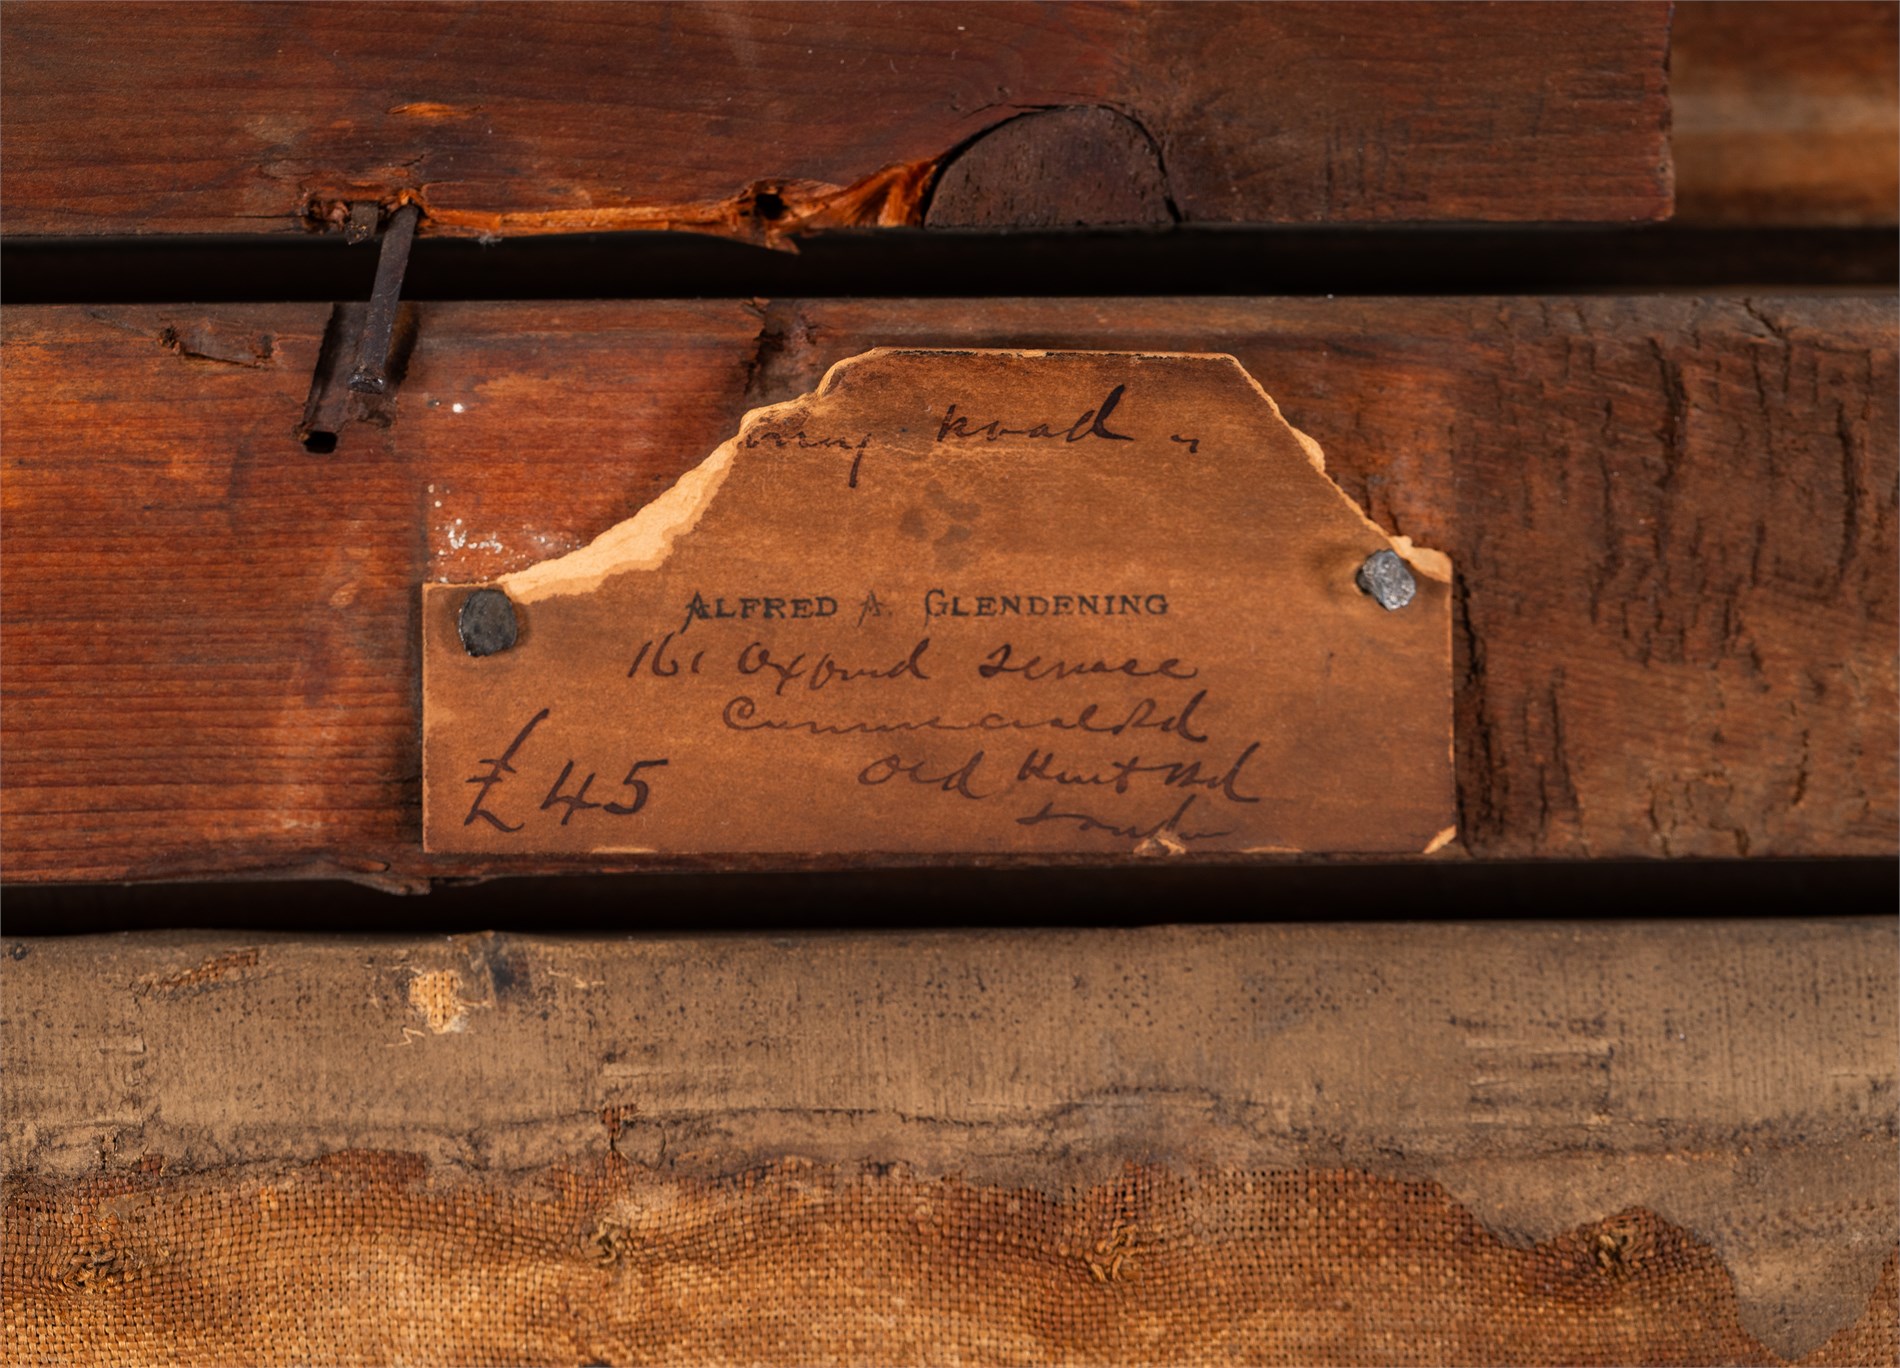 Road
ALFRED A. GLENDENING
161 Oxford Terrace
Commercial Rd
Old Kent Rd
London
£45